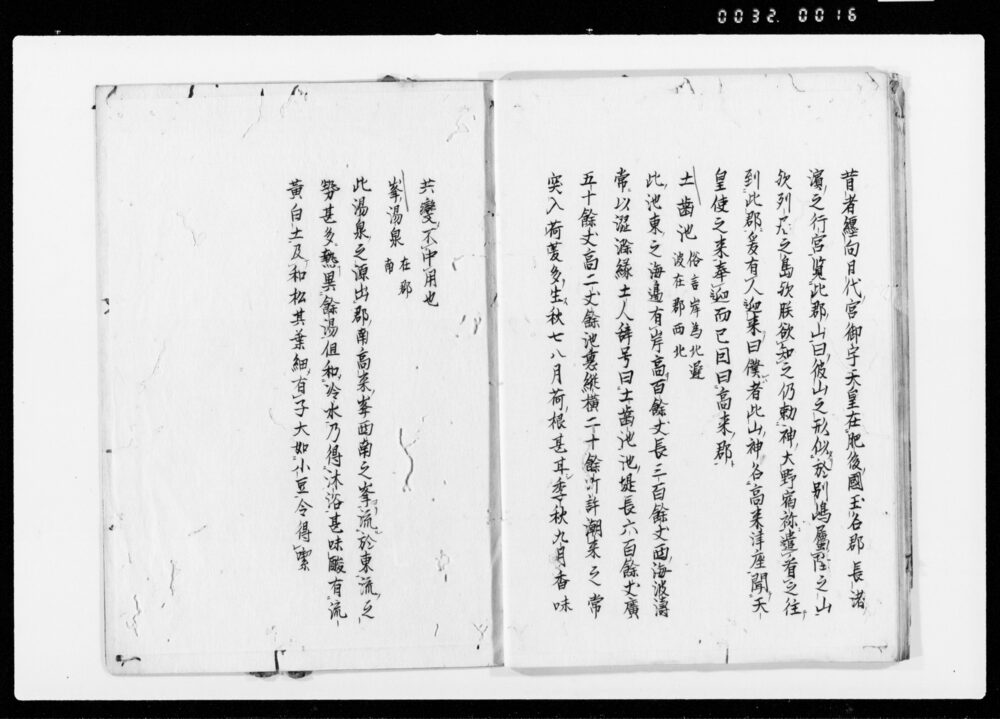 0032.0016
昔者纒向日代宮御宇天皇在肥後國玉名郡長渚
濱之行宮覧此郡山曰彼山之形似於別嶋属陸之山
欤列居之島欤朕欲知之仍勅神大野宿祢遣看之往
到此郡爰有人迎来曰僕者此山神名高来津座聞天
皇使之来奉迎而已囙曰高来郡
土歯池俗言岸為北遅
波在郡西北
此池東之海邉有岸高百餘丈長三百餘丈西海波濤
常以濕滌縁土人辞号曰土歯池池堤長六百餘丈廣
五十餘丈高二丈餘池裏縦横二十餘町許潮来之常
突入荷菱多生秋七八月荷根甚耳季秋九月香味
共變不中用也
峯湯泉在郡
南
此湯泉之源出郡南高来峯西南之峯流於東流之
勢甚多熱異餘湯但和冷水乃得沐浴甚味酸有流
黄白土及和松其葉細有子大如小豆令得